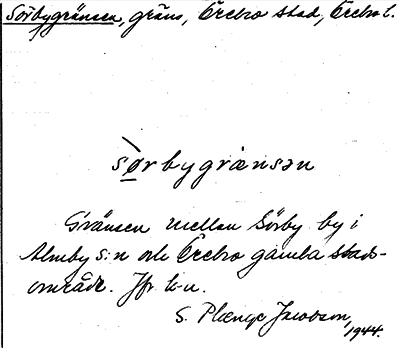 Sörbygränsen, gräns, Örebro stad, Örebro l.
sørbygrænsən
Gränsen mellan Sörby by i
Almby s:n och Örebro gamla stads-
område. Jfr k-n.
S. Plænge Jacobson,
1944.